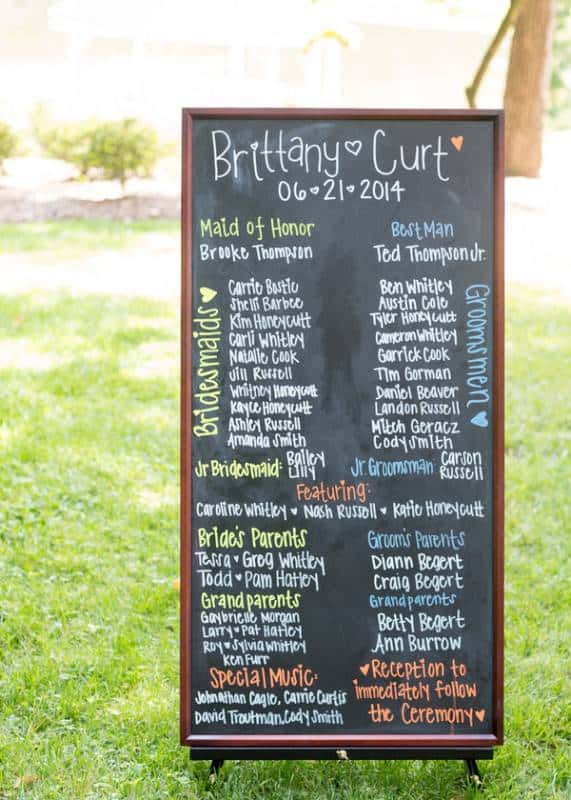 Brittany ♡ Curt ♥
06 ♥ 21 ♥ 2014
Maid of Honor
Brooke Thompson
Best Man
Ted Thompson Jr.
Bridesmaids ♥
Carrie Bostic
Shelli Barbee
Kim Honeycutt
Carli Whitley
Natalie Cook
Jill Russell
Whitney Honeycutt
Kayce Honeycutt
Ashley Russell
Amanda Smith
Groomsmen ♥
Ben Whitley
Austin Cole
Tyler Honeycutt
Cameron Whitley
Garrick Cook
Tim Gorman
Daniel Beaver
Landon Russell
Mitch Geracz
Cody Smith
Jr Bridesmaid: Bailey
Lilly
Jr. Groomsman: Carson
Russell
Featuring:
Caroline Whitley ♥ Nash Russell ♥ Katie Honeycutt
Bride's Parents
Tessa ♥ Greg Whitley
Todd ♥ Pam Hatley
Groom's Parents
Diann Begert
Craig Begert
Grandparents
Gaybrielle Morgan
Larry ♥ Pat Hatley
Roy ♥ Sylvia Whitley
Ken Furr
Grandparents
Betty Begert
Ann Burrow
Special Music:
Johnathan Cagle, Carrie Curtis
David Troutman, Cody Smith
♥ Reception to
immediately follow
the Ceremony ♥